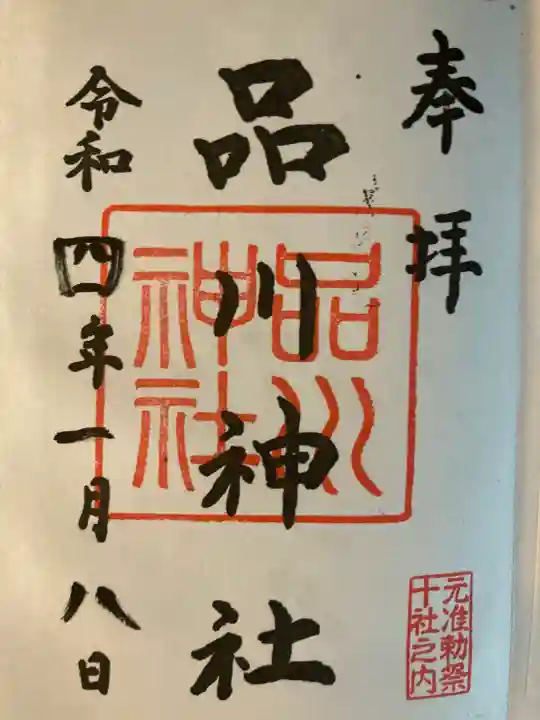 奉拝
品川神社
品川
神社
令和四年一月八日
元准勅祭
十社之内